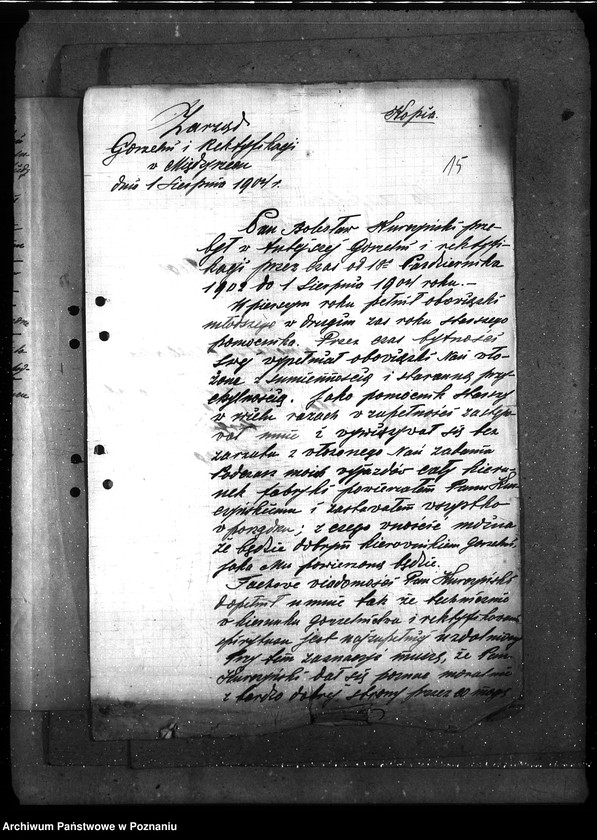 Kopia.
15
Zarząd
Gorzelni i Rektyfikacyi
w Międzyrzecu
dnia 1 Sierpnia 1904 r.
Pan Bolesław Kurzyński prze-
był w tutejszej Gorzelni i rektyfi-
kacyi przez czas od 10 Października
1902 do 1 Sierpnia 1904 roku.-
W pierwszym roku pełnił obowiązki
młodszego w drugim zaś roku starszego
pomocnika. Przez czas bytności
swej wypełniał obowiązki Nań wło-
żone z sumiennością i staranną przy-
chylnością. Jako pomocnik starszy
w wielu razach w zupełności zastępo-
wał mnie i wywiązywał się bez
zarzutu z włożonego Nań zadania
Podczas moich wyjazdów cały kieru-
nek fabryki powierzałem Panu Kur-
zyńskiemu i zastawałem wszystko
w porządku; z czego wnosić można
że będzie dobrym kierownikiem gorzelni
jaka Mu powierzoną będzie.
Fachowe wiadomości Pan Kurzyński
dopełnił u mnie tak że technicznie
w kierunku gorzelnictwa i rektyfikowania
spirytusu jest najzupełniej uzdolniony
Przy tem zaznaczyć muszę, że Pan
Kurzyński dał się poznać moralnie
z bardzo dobrej strony przez co mogę
Archiwum Państwowe w Poznaniu